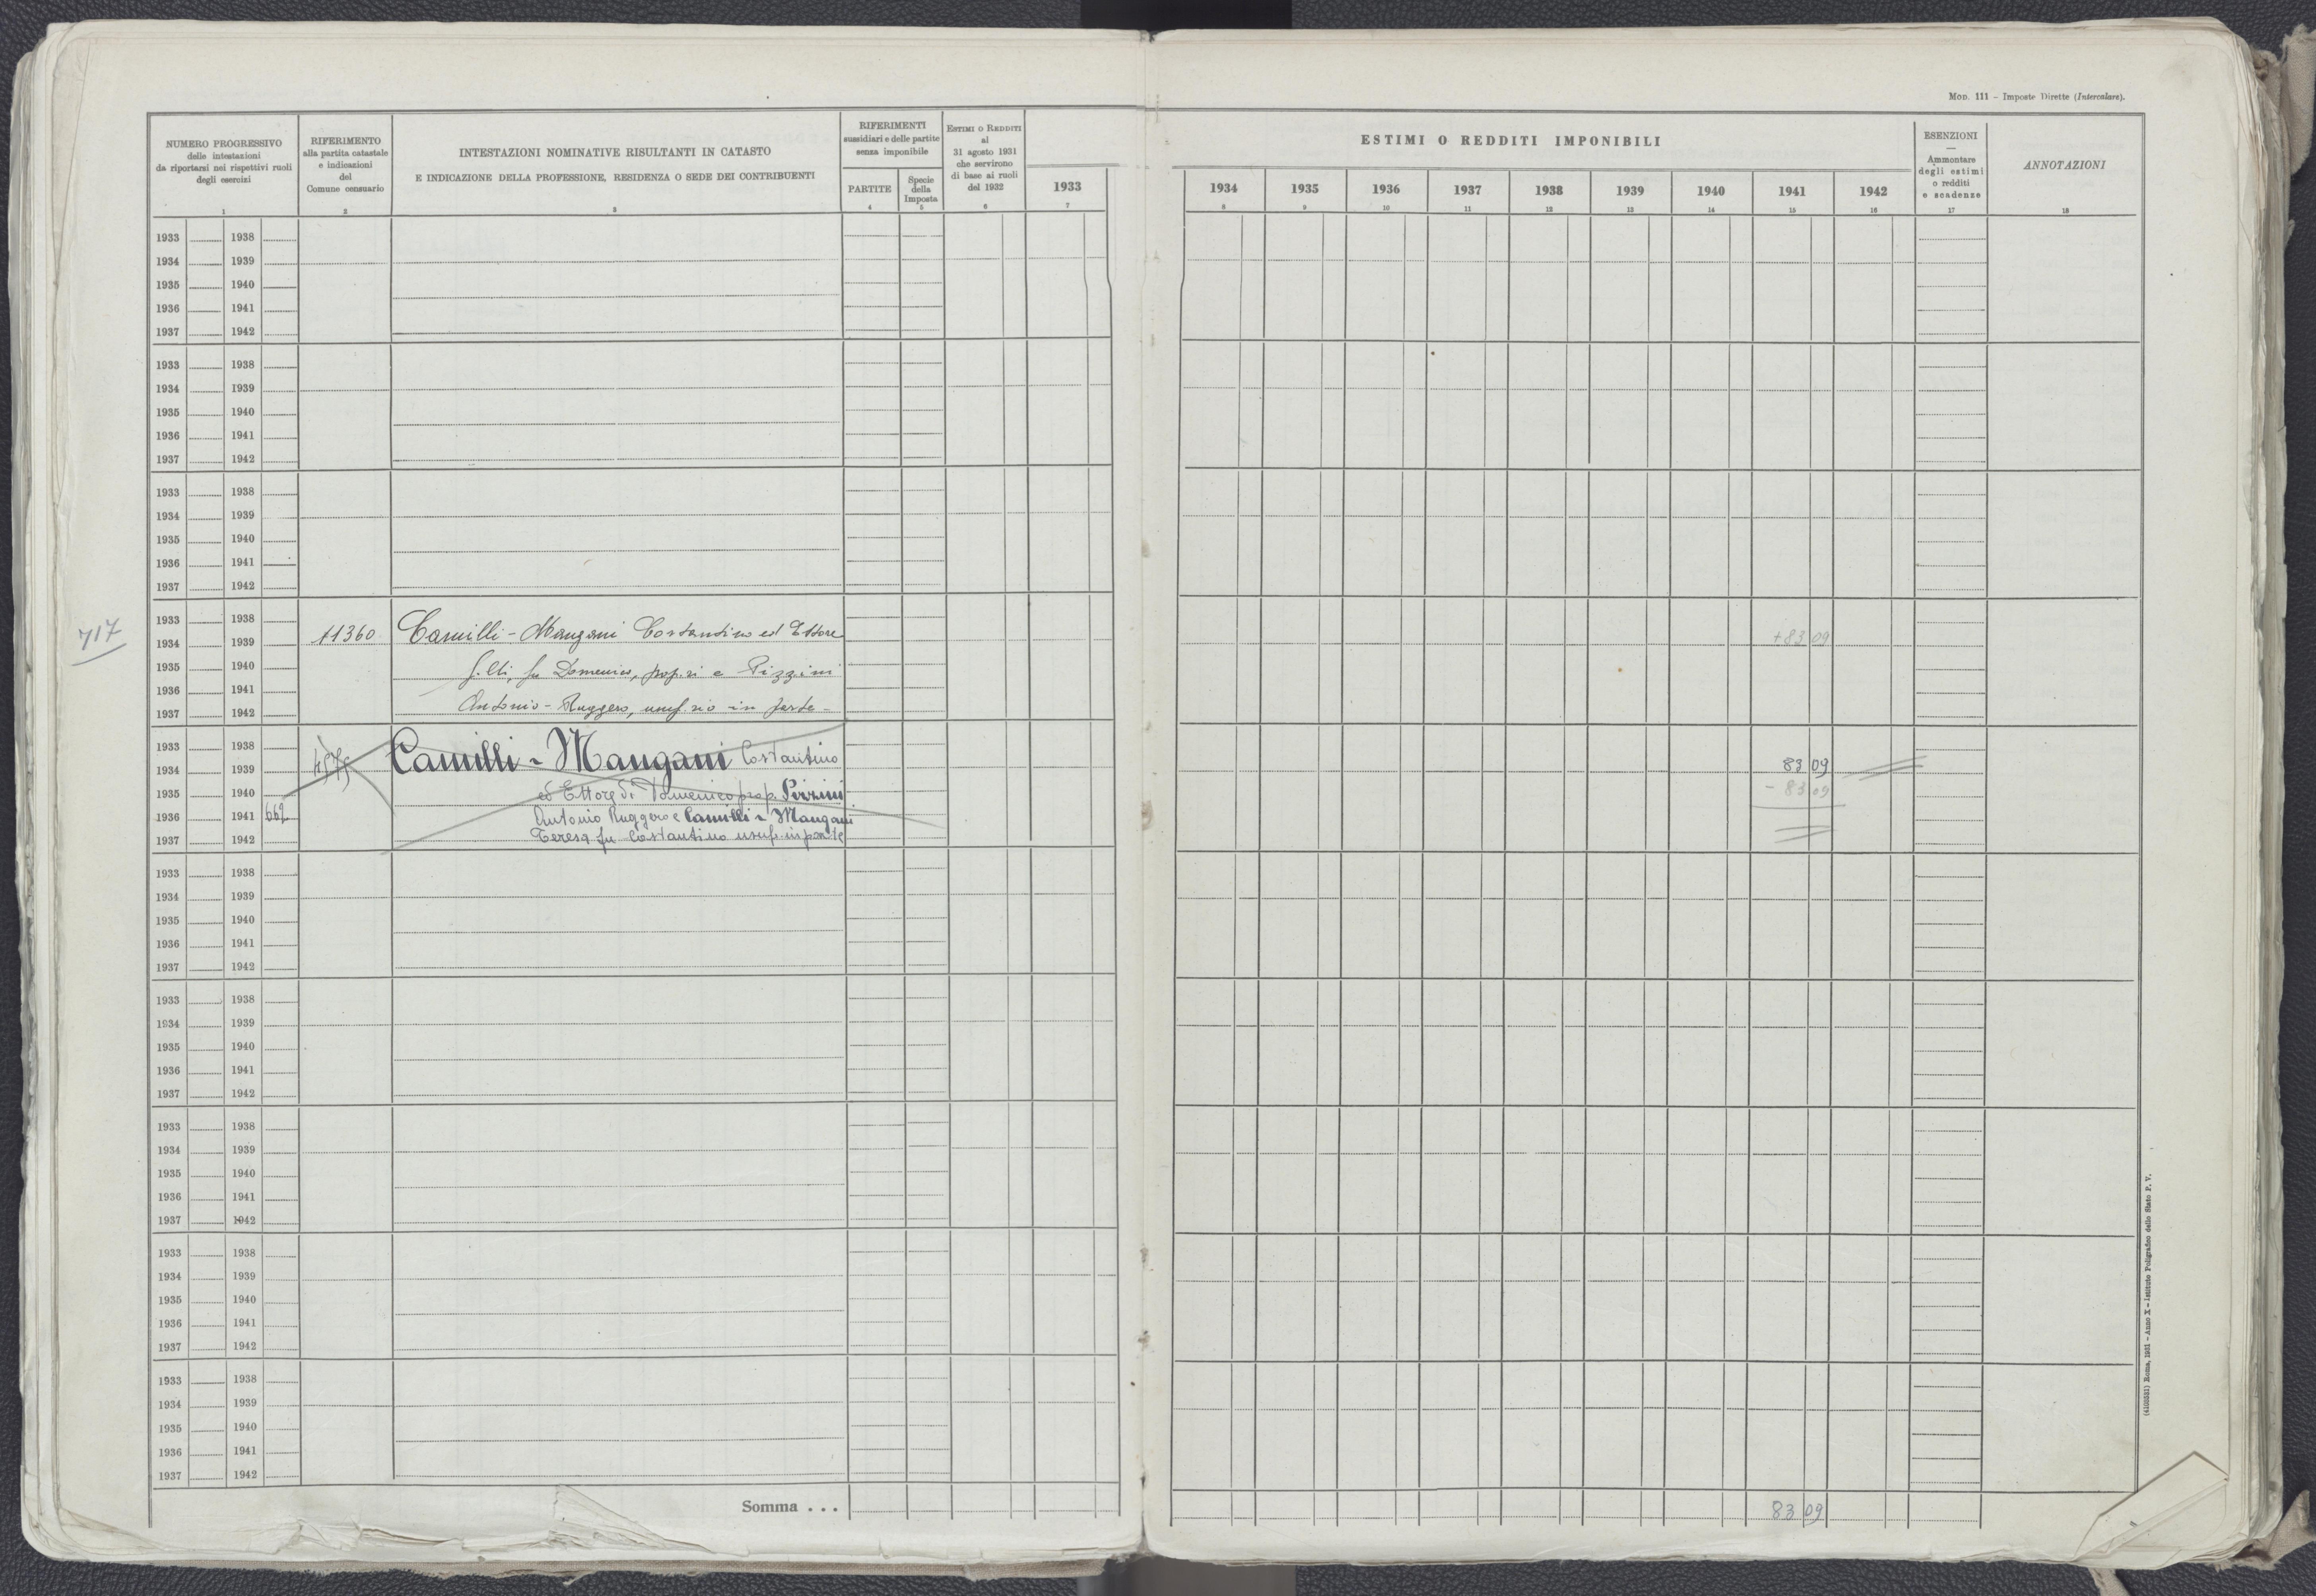 MOD. 111 – Imposte Dirette (Intercalare).
NUMERO PROGRESSIVO
delle intestazioni
da riportarsi nei rispettivi ruoli
degli esercizi
1
RIFERIMENTO
alla partita catastale
e indicazioni
del
Comune censuario
2
INTESTAZIONI NOMINATIVE RISULTANTI IN CATASTO
E INDICAZIONE DELLA PROFESSIONE, RESIDENZA O SEDE DEI CONTRIBUENTI
3
RIFERIMENTI
sussidiari e delle partite
senza imponibile
PARTITE
4
Specie
della
Imposta
5
ESTIMI O REDDITI
al
31 agosto 1931
che servirono
di base ai ruoli
del 1932
6
1933
7
ESTIMI O REDDITI IMPONIBILI
1934 1935 1936 1937 1938 1939 1940 1941 1942
8 9 10 11 12 13 14 15 16
ESENZIONI
—
Ammontare
degli estimi
o redditi
e scadenze
17
ANNOTAZIONI
18
1933 1938
1934 1939
1935 1940
1936 1941
1937 1942
1933 1938
1934 1939
1935 1940
1936 1941
1937 1942
1933 1938
1934 1939
1935 1940
1936 1941
1937 1942
717
1933 1938
1934 1939 11360 Camilli - Mangani Costantino ed Ettore +83 09
1935 1940 f.lli, fu Domenico, prop.ri e Pizzini
1936 1941
1937 1942 Antonio - Ruggero, usuf.rio in parte -
1933 1938
1934 1939 Camilli - Mangani Costantino 83 09
1935 1940 ed Ettore di Domenico prop. Pizzini - 83 09
1936 1941 662 Antonio Ruggero e Camilli - Mangani
1937 1942 Teresa fu Costantino usuf. in parte
1933 1938
1934 1939
1935 1940
1936 1941
1937 1942
1933 1938
1934 1939
1935 1940
1936 1941
1937 1942
1933 1938
1934 1939
1935 1940
1936 1941
1937 1942
1933 1938
1934 1939
1935 1940
1936 1941
1937 1942
1933 1938
1934 1939
1935 1940
1936 1941
1937 1942
Somma . . . 83 09
(4105531) Roma, 1931 – Anno X – Istituto Poligrafico dello Stato P. V.